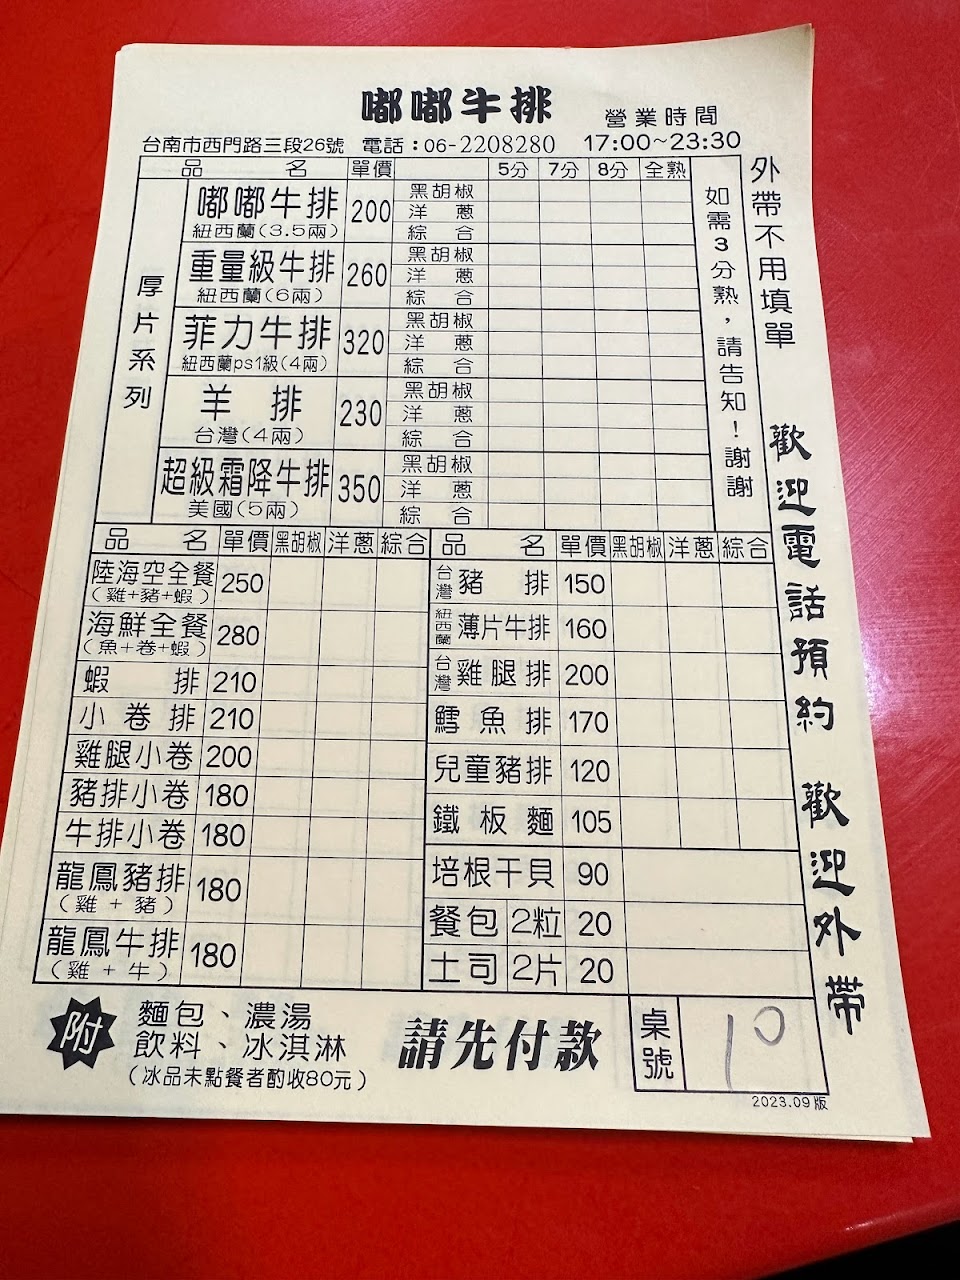 嘟嘟牛排
營業時間
台南市西門路三段26號 電話：06-2208280 17:00~23:30
品名 單價 5分 7分 8分 全熟
厚片系列
嘟嘟牛排 200 黑胡椒
紐西蘭(3.5兩) 洋蔥
綜合
重量級牛排 260 黑胡椒
紐西蘭(6兩) 洋蔥
綜合
菲力牛排 320 黑胡椒
紐西蘭ps1級(4兩) 洋蔥
綜合
羊排 230 黑胡椒
台灣(4兩) 洋蔥
綜合
超級霜降牛排 350 黑胡椒
美國(5兩) 洋蔥
綜合
如需3分熟，請告知！謝謝
外帶不用填單 歡迎電話預約 歡迎外帶
品名 單價 黑胡椒 洋蔥 綜合
陸海空全餐 250
(雞+豬+蝦)
海鮮全餐 280
(魚+卷+蝦)
蝦排 210
小卷排 210
雞腿小卷 200
豬排小卷 180
牛排小卷 180
龍鳳豬排 180
(雞+豬)
龍鳳牛排 180
(雞+牛)
品名 單價 黑胡椒 洋蔥 綜合
台灣 豬排 150
紐西蘭 薄片牛排 160
台灣 雞腿排 200
鱈魚排 170
兒童豬排 120
鐵板麵 105
培根干貝 90
餐包 2粒 20
土司 2片 20
附 麵包、濃湯
飲料、冰淇淋
(冰品未點餐者酌收80元)
請先付款
桌號 10
2023.09版